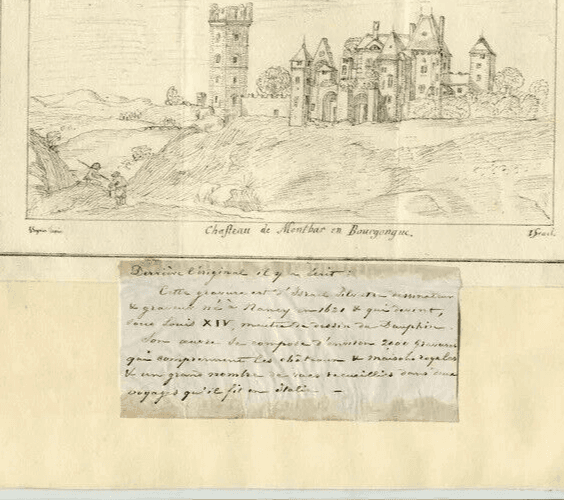 Chasteau de Montbar en Bourgongne.
Israel
Derrière l'original il y a écrit :
Cette gravure est d'Israel Silvestre dessinateur
& graveur né à Nancy en 1621 & qui devint,
sous Louis XIV, maitre de dessin du Dauphin.
Son œuvre se compose d'environ 2000 gravures
qui comprennent les châteaux & maisons royales
& un grand nombre de vues recueillies dans deux
voyages qu'il fit en Italie —